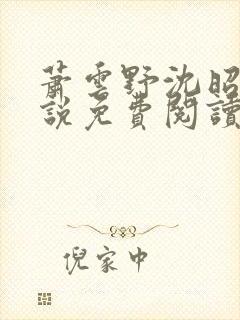 蕭雲野沈昭
說免費閱讀
倪家中